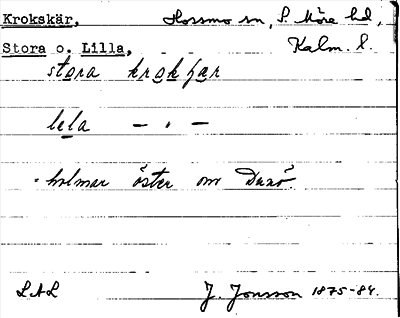 Krokskär, Hossmo sn, S. Möre hd,
Stora o. Lilla, Kalm. l.
stora krokʃær
lela – " –
holmar öster om Dunö
LAL J. Jonsson 1875-84.